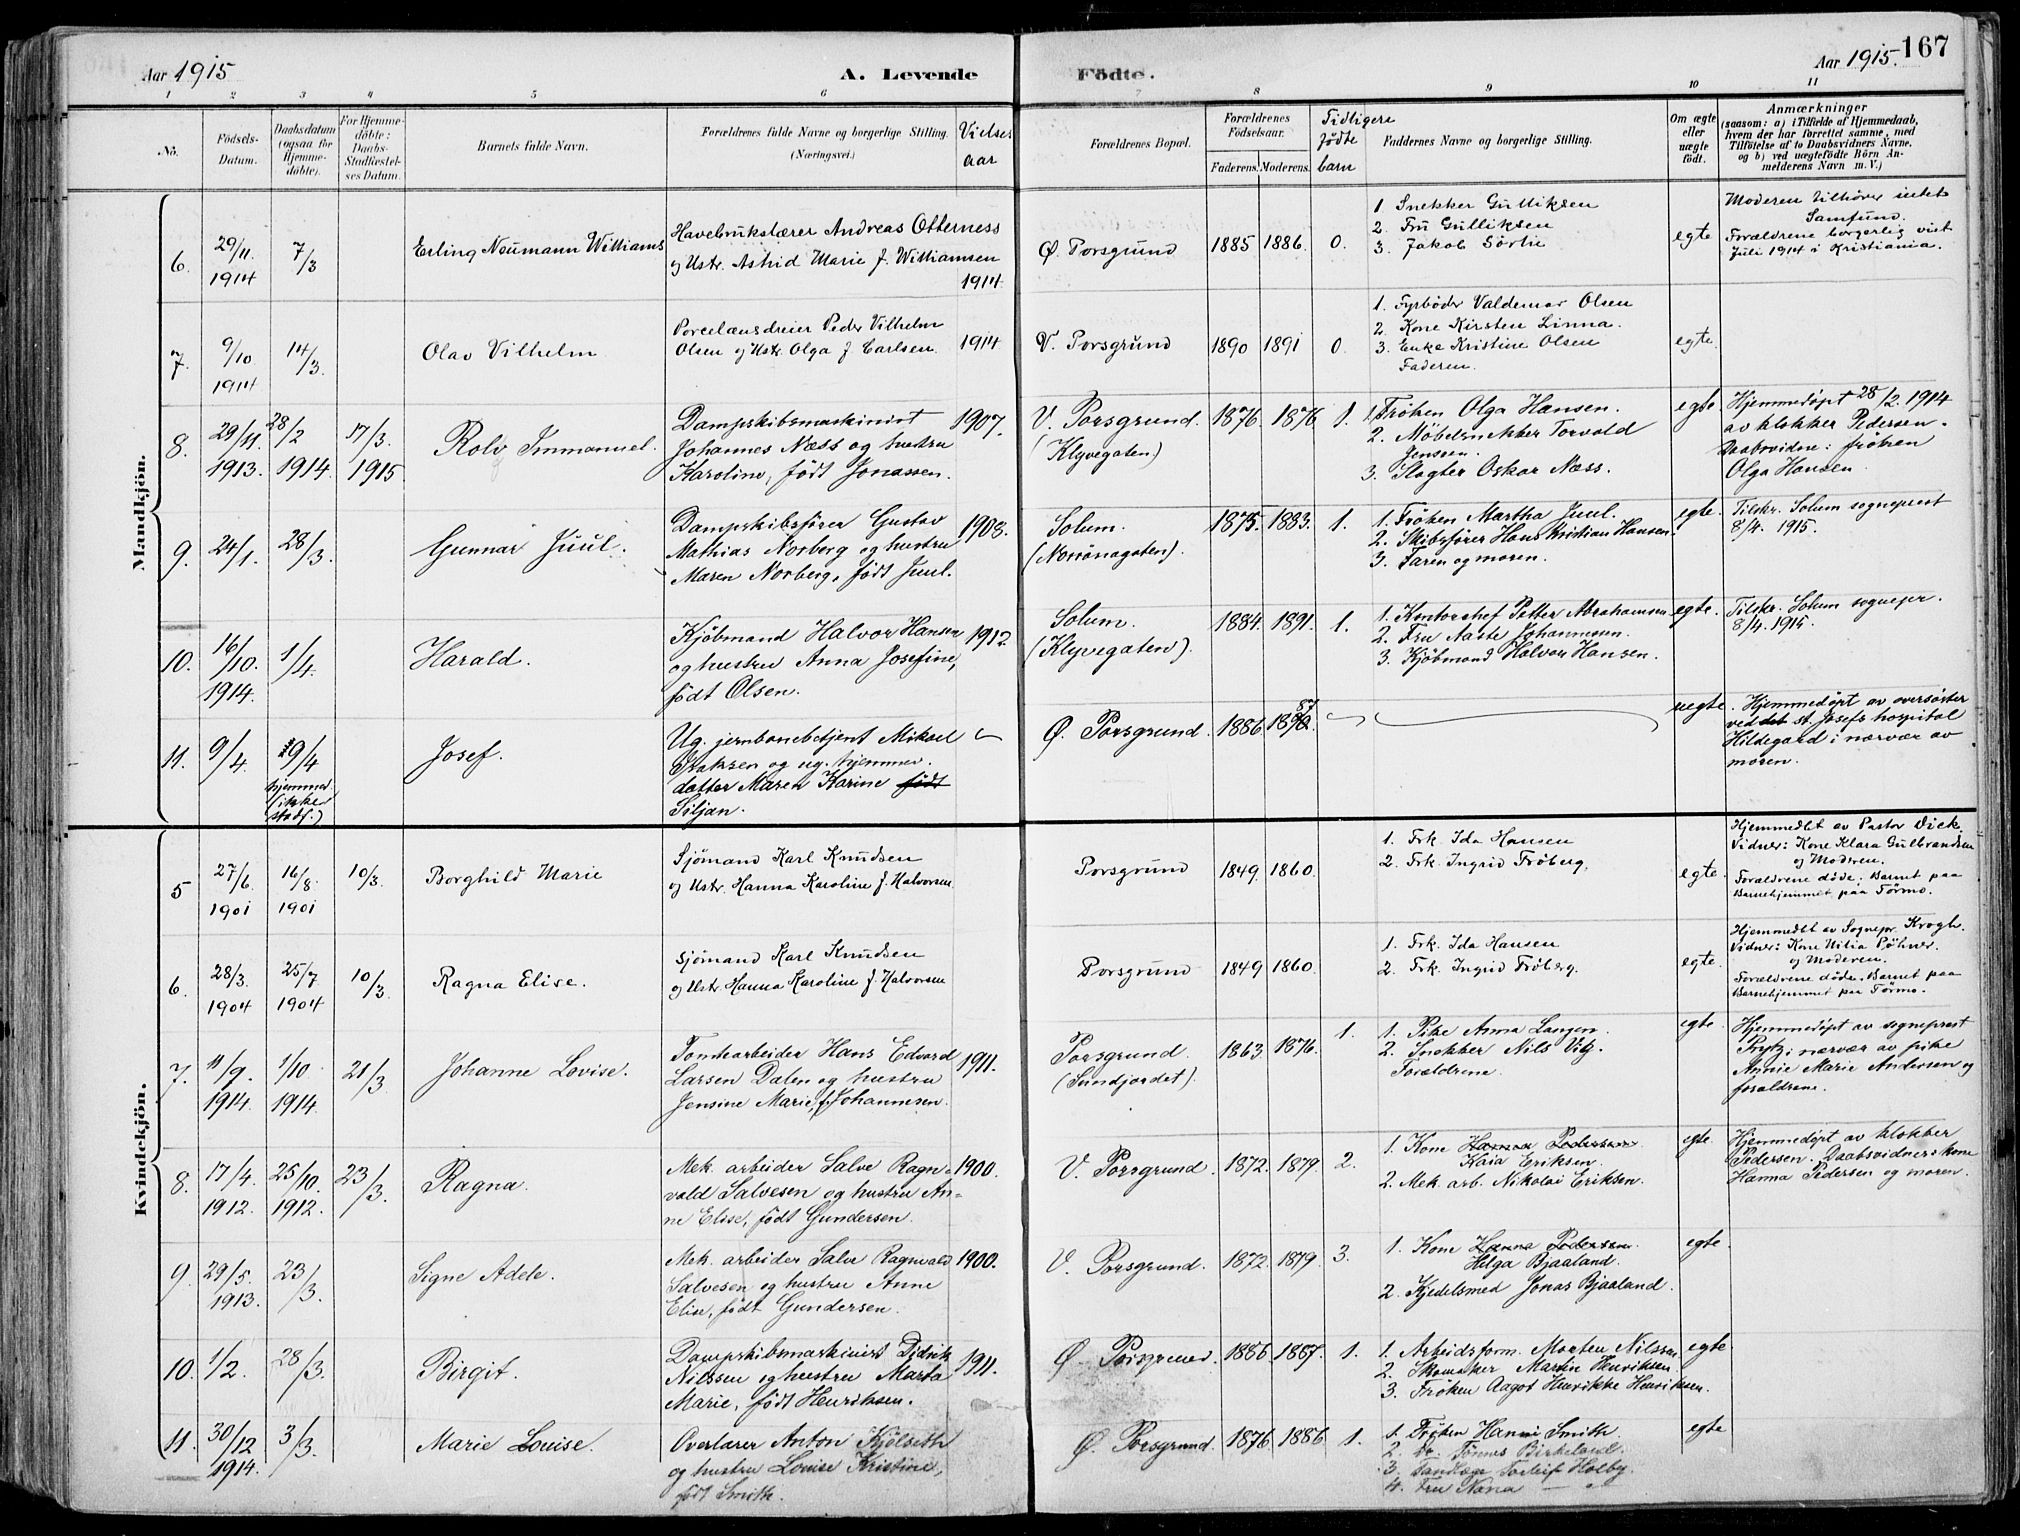 Aar 1915
A. Levende
Födte.
Aar 1915.
167
1 2 3 4 5 6 7 8 9 10 11
No.
Födsels-
Datum.
Daabsdatum
(ogsaa for
Hjemme-
döbte).
For Hjemme-
döbte:
Daabs-
Stadfæstel-
ses Datum.
Barnets fulde Navn.
Forældrenes fulde Navne og borgerlige Stilling.
(Næringsvei.)
Vielses
aar
Forældrenes Bopæl.
Forældrenes
Födselsaar.
Faderens. Moderens.
Tidligere
födte
barn
Faddernes Navne og borgerlige Stilling.
Om ægte
eller
uægte
födt.
Anmærkninger
(saasom: a) i Tilfælde af Hjemmedaab,
hvem der har forrettet samme, med
Tilföielse af to Daabsvidners Navne,
og b) ved uægtefödte Börn An-
melderens Navn m. V.)
Mandkjön.
6.
29/11.
1914
7/3
Erling Neumann Williams
Havebrukslærer Andreas Otterness
og Hstr. Astrid Marie f. Williamsen
1914
Ø. Porsgrund
1885 1886 0.
1 Snekker Gulliksen
2. Fru Gulliksen
3. Jakob Sörlie
egte
Moderen tilhører intet
Samfund.
Forældrene borgerlig viet
Juli 1914 i Kristiania.
7.
9/10
1914
14/3.
Olav Vilhelm
Porcelænsdreier Peder Vilhelm
Olsen og Hstr. Olga f. Carlsen.
1914
V. Porsgrund
1890 1891 0.
1. Fyrbøder Valdemar Olsen
2. Kone Kirsten Linna.
3. Enke Kristine Olsen
Faderen.
egte.
8.
29/11.
1913.
28/2
1914
17/3.
1915
Rolv Immanuel.
Dampskibsmaskinist
Johannes Næss og hustru
Karoline, født Jonassen.
1907.
V. Porsgrund.
(Klyvegaten)
1876. 1876 1.
1. Frøken Olga Hansen.
2. Møbelsnekker Torvald
Jenssen.
3. Slagter Oskar Næss.
egte
Hjemmedøpt 28/2. 1914
av klokker Pedersen.
Daabsvidne: frøken
Olga Hansen.
9.
24/1.
28/3.
Gunnar Juul.
Dampskibsfører Gustav
Mathias Norberg og hustru
Maren Norberg, født Juul.
1908.
Solum.
1875. 1883. 1.
1. Frøken Martha Juul.
2. Skibsfører Hans Kristian Hansen.
3. Faren og moren.
egte.
Tilskr. Solum sogneprest
8/4. 1915.
10.
16/10.
1914.
1/4.
Harald.
Kjøbmand Halvor Hansen
og hustru Anna Josefine,
født Olsen.
1912.
Solum.
(Klyvegaten).
1884. 1891. 1.
1. Kontorchef Petter Abrahamsen
2. Fru Aaste Johannesen.
3. Kjøbmand Halvor Hansen.
egte.
Tilskr. Solum sognepr.
8/4. 1915.
11.
9/4.
19/4
hjemmed.
(ikke
stadf.)
Josef.
Ug. jernbanebetjent Mikael
Isaksen og ug. hjemmev.
datter Maren Karine født
Siljan.
Ø. Porsgrund.
1886 1890. 87
uegte
Hjemmedøpt av oversøster
ved det st. Josefs hospital
Hildegard i nærvær av
moren.
Kvindekjön.
5
27/6
1901
16/8.
1901
10/3.
Borghild Marie
Sjömand Karl Knudsen
og Hstr. Hanna Karoline f. Halvorsen
Porsgrund
1849. 1860.
1. Frk. Ida Hansen
2. Frk. Ingrid Fröberg.
egte.
Hjemmedbt av Pastor Dick.
Vidner: Kone Klara Gulbrandsen
og Moderen.
Forældrene döde. Barnet paa
Barnehjemmet paa Förmo.
6.
28/3.
1904
25/7
1904
10/3.
Ragna Elise.
Sjömand Karl Knudsen
og Hstr. Hanna Karoline f. Halvorsen
Porsgrund
1849 1860.
1. Frk. Ida Hansen
2. Frk. Ingrid Fröberg.
egte.
Hjemmedbt av Sognepr. Krogh.
og Moderen.
Forældrene döde. Barnet paa
Barnehjemmet paa Förmo.
7.
11/9.
1914
1/10
1914
21/3
Johanne Lovise.
Tomtearbeider Hans Edvard
Larsen Dalen og hustru
Jensine Marie, f. Johannesen.
1911.
Porsgrund.
(Sundjordet).
1863. 1876.
1
1. Pike Anna Langen.
2. Snekker Nils Vig.
Forældrene.
egte.
Hjemmedøpt av sogneprest
Prytz i nærvær av pike
Annie Marie Andersen og
forældrene.
8.
17/4.
1912.
25/10.
1912.
23/3.
Ragna.
Mek. arbeider Salve Ragn-
vald Salvesen og hustru An-
ne Elise, født Gundersen.
1900.
V. Porsgrund.
1872. 1879. 2.
1. Kone Hanna Pedersen
Kaia Eriksen.
2. Mek. arb. Nikolai Eriksen.
egte.
Hjemmedøpt av klokker
Pedersen. Daabsvidner: kone
Hanna Pedersen og moren.
9.
29/5.
1913.
23/3.
Signe Adele.
Mek. arbeider Salve Ragnvald
Salvesen og hustru Anne
Elise, født Gundersen.
1900.
V. Porsgrund.
1872. 1879. 3.
1. Kone Hanna Pedersen.
Helga Bjaaland.
2. Kjedelsmed Jonas Bjaaland.
egte.
10.
1/2.
28/3.
Birgit.
Dampskibsmaskinist Didrik
Nilssen og hustru Marta
Marie, født Henriksen.
1911.
Ø. Porsgrund.
1886. 1887. 1.
1. Arbeidsform. Morten Nilssen
2. Skomaker Martin Henriksen.
3. Frøken Aagot Henrikke Henriksen.
egte
11.
30/12
1914.
3/3.
Marie Louise.
Overlærer Anton Kjølseth
og hustru Louise Kristine,
født Smith.
Ø. Porsgrund.
1876. 1886. 1.
1. Frøken Hanni Smith.
2. Dr. Tønnes Birkeland.
3. Tandlæge Torleif Holby.
4. Fru Nana
egte